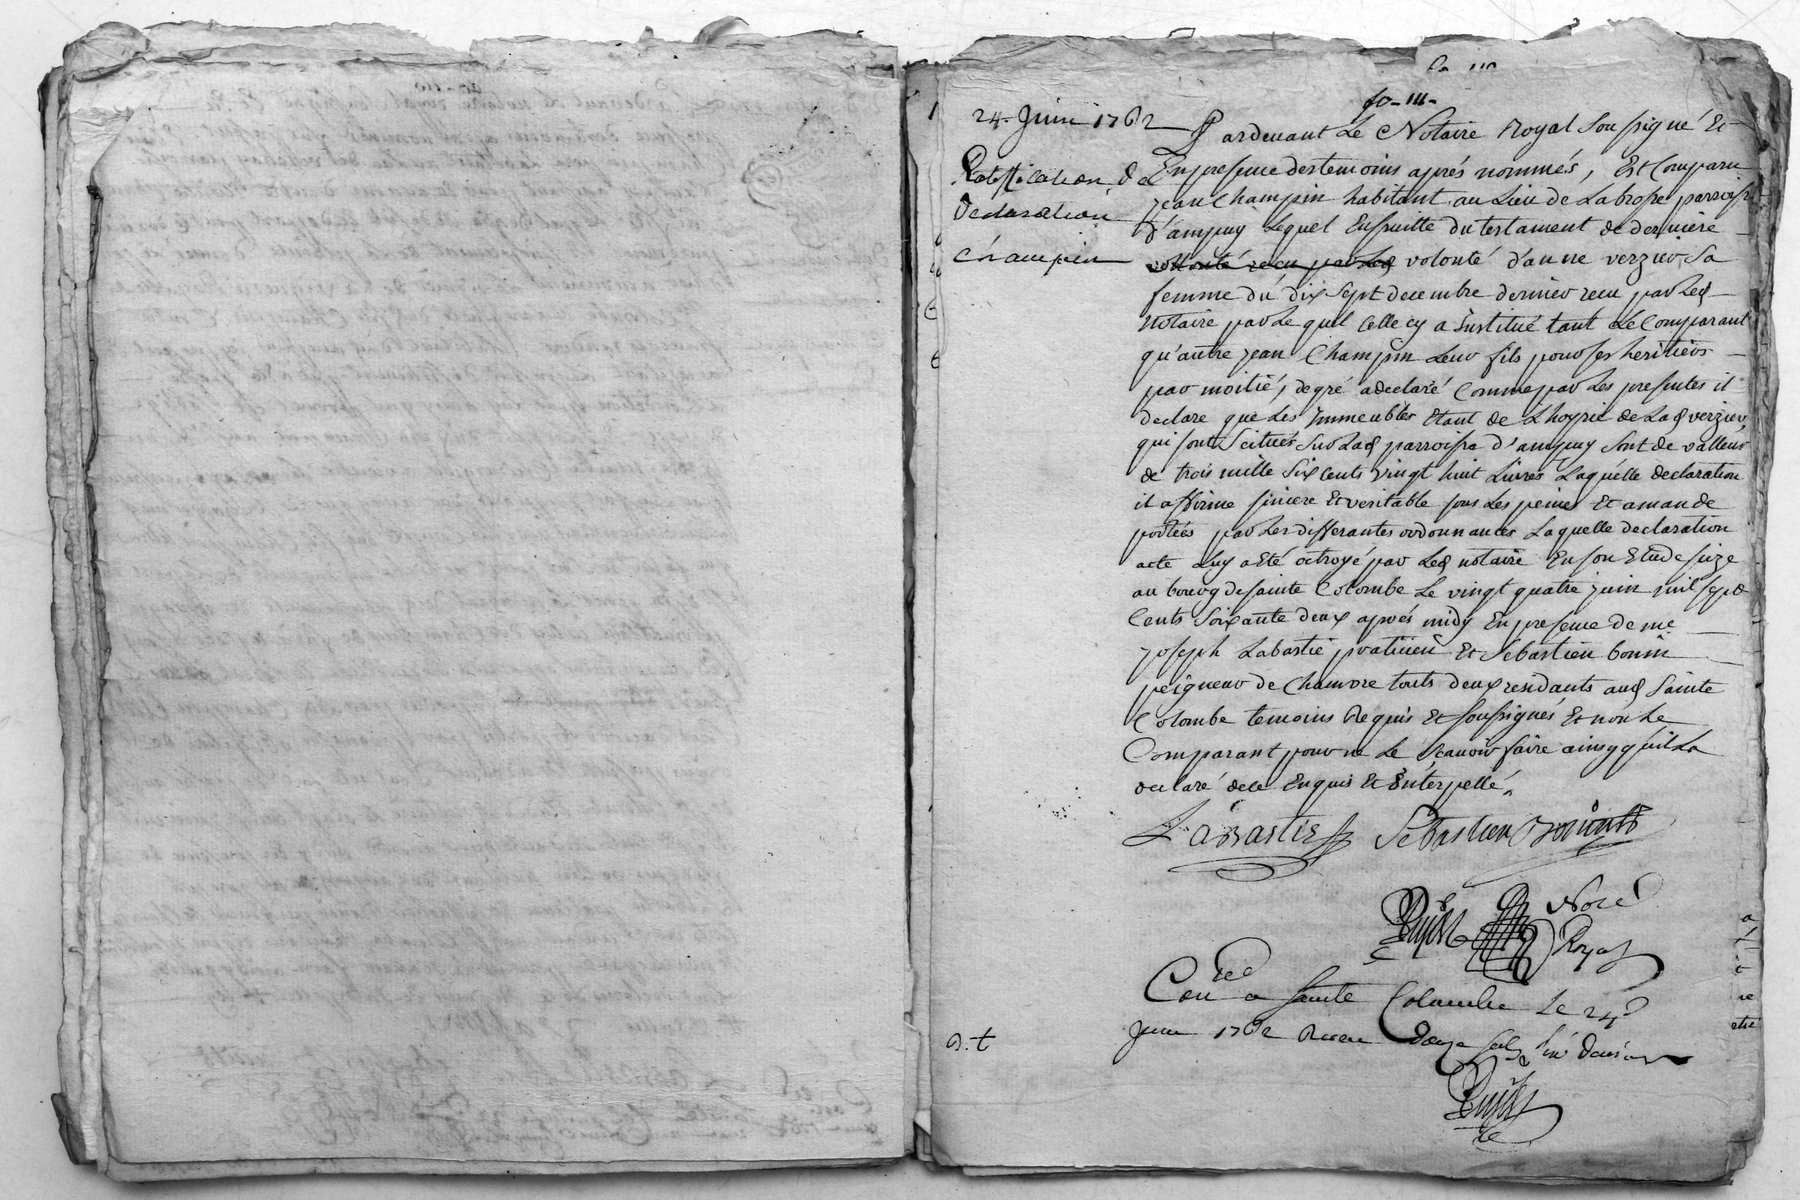 fo-111-
24 Juin 1762
Ratification de
Declaration
Champin
Pardevant Le Notaire Royal Soussigné Et
En presence des temoins aprés nommés, Est Comparu
jean Champin habitant au Lieu de Labrosse parroisse
d'ampuy Lequel Ensuitte du testament de derniere
volonté recu par Led volonté d'anne verzier Sa
femme du dix Sept decembre dernier recu par Led
Notaire par Le quel Celle cy a institué tant Le Comparant
qu'autre jean Champin Leur fils pour ses heritiers
par moitié, de gré a declaré Comme par Les presentes il
declare que Les Immeubles Etant de L'hoyrie de Lad verzier,
qui sont Scitués Sur Lad parroisse d'ampuy Sont de valleur
de trois mille Six Cents vingt huit Livres Laquelle declaration
il affirme sincere Et veritable sous Les peines Et amande
portées par Les differantes ordonnances Laquelle declaration
acte Luy a Eté octroyé par Led notaire En son Etude size
au bourg de sainte Colombe Le vingt quatre juin mil sept
Cents Soixante deux aprés midy En presence de me
joseph Labastie praticien Et Sebastien bonin
peigneur de Chanvre touts deux residants aud Sainte
Colombe temoins Requis Et soussignés Et non Le
Comparant pour ne Le Scavoir faire ainsy quil La
declaré de ce Enquis Et Enterpellé.
Labastie Sebastien
Notre
Royal
Conlé a Sainte Colombe Le 24
Juin 1762 Recu douze sols